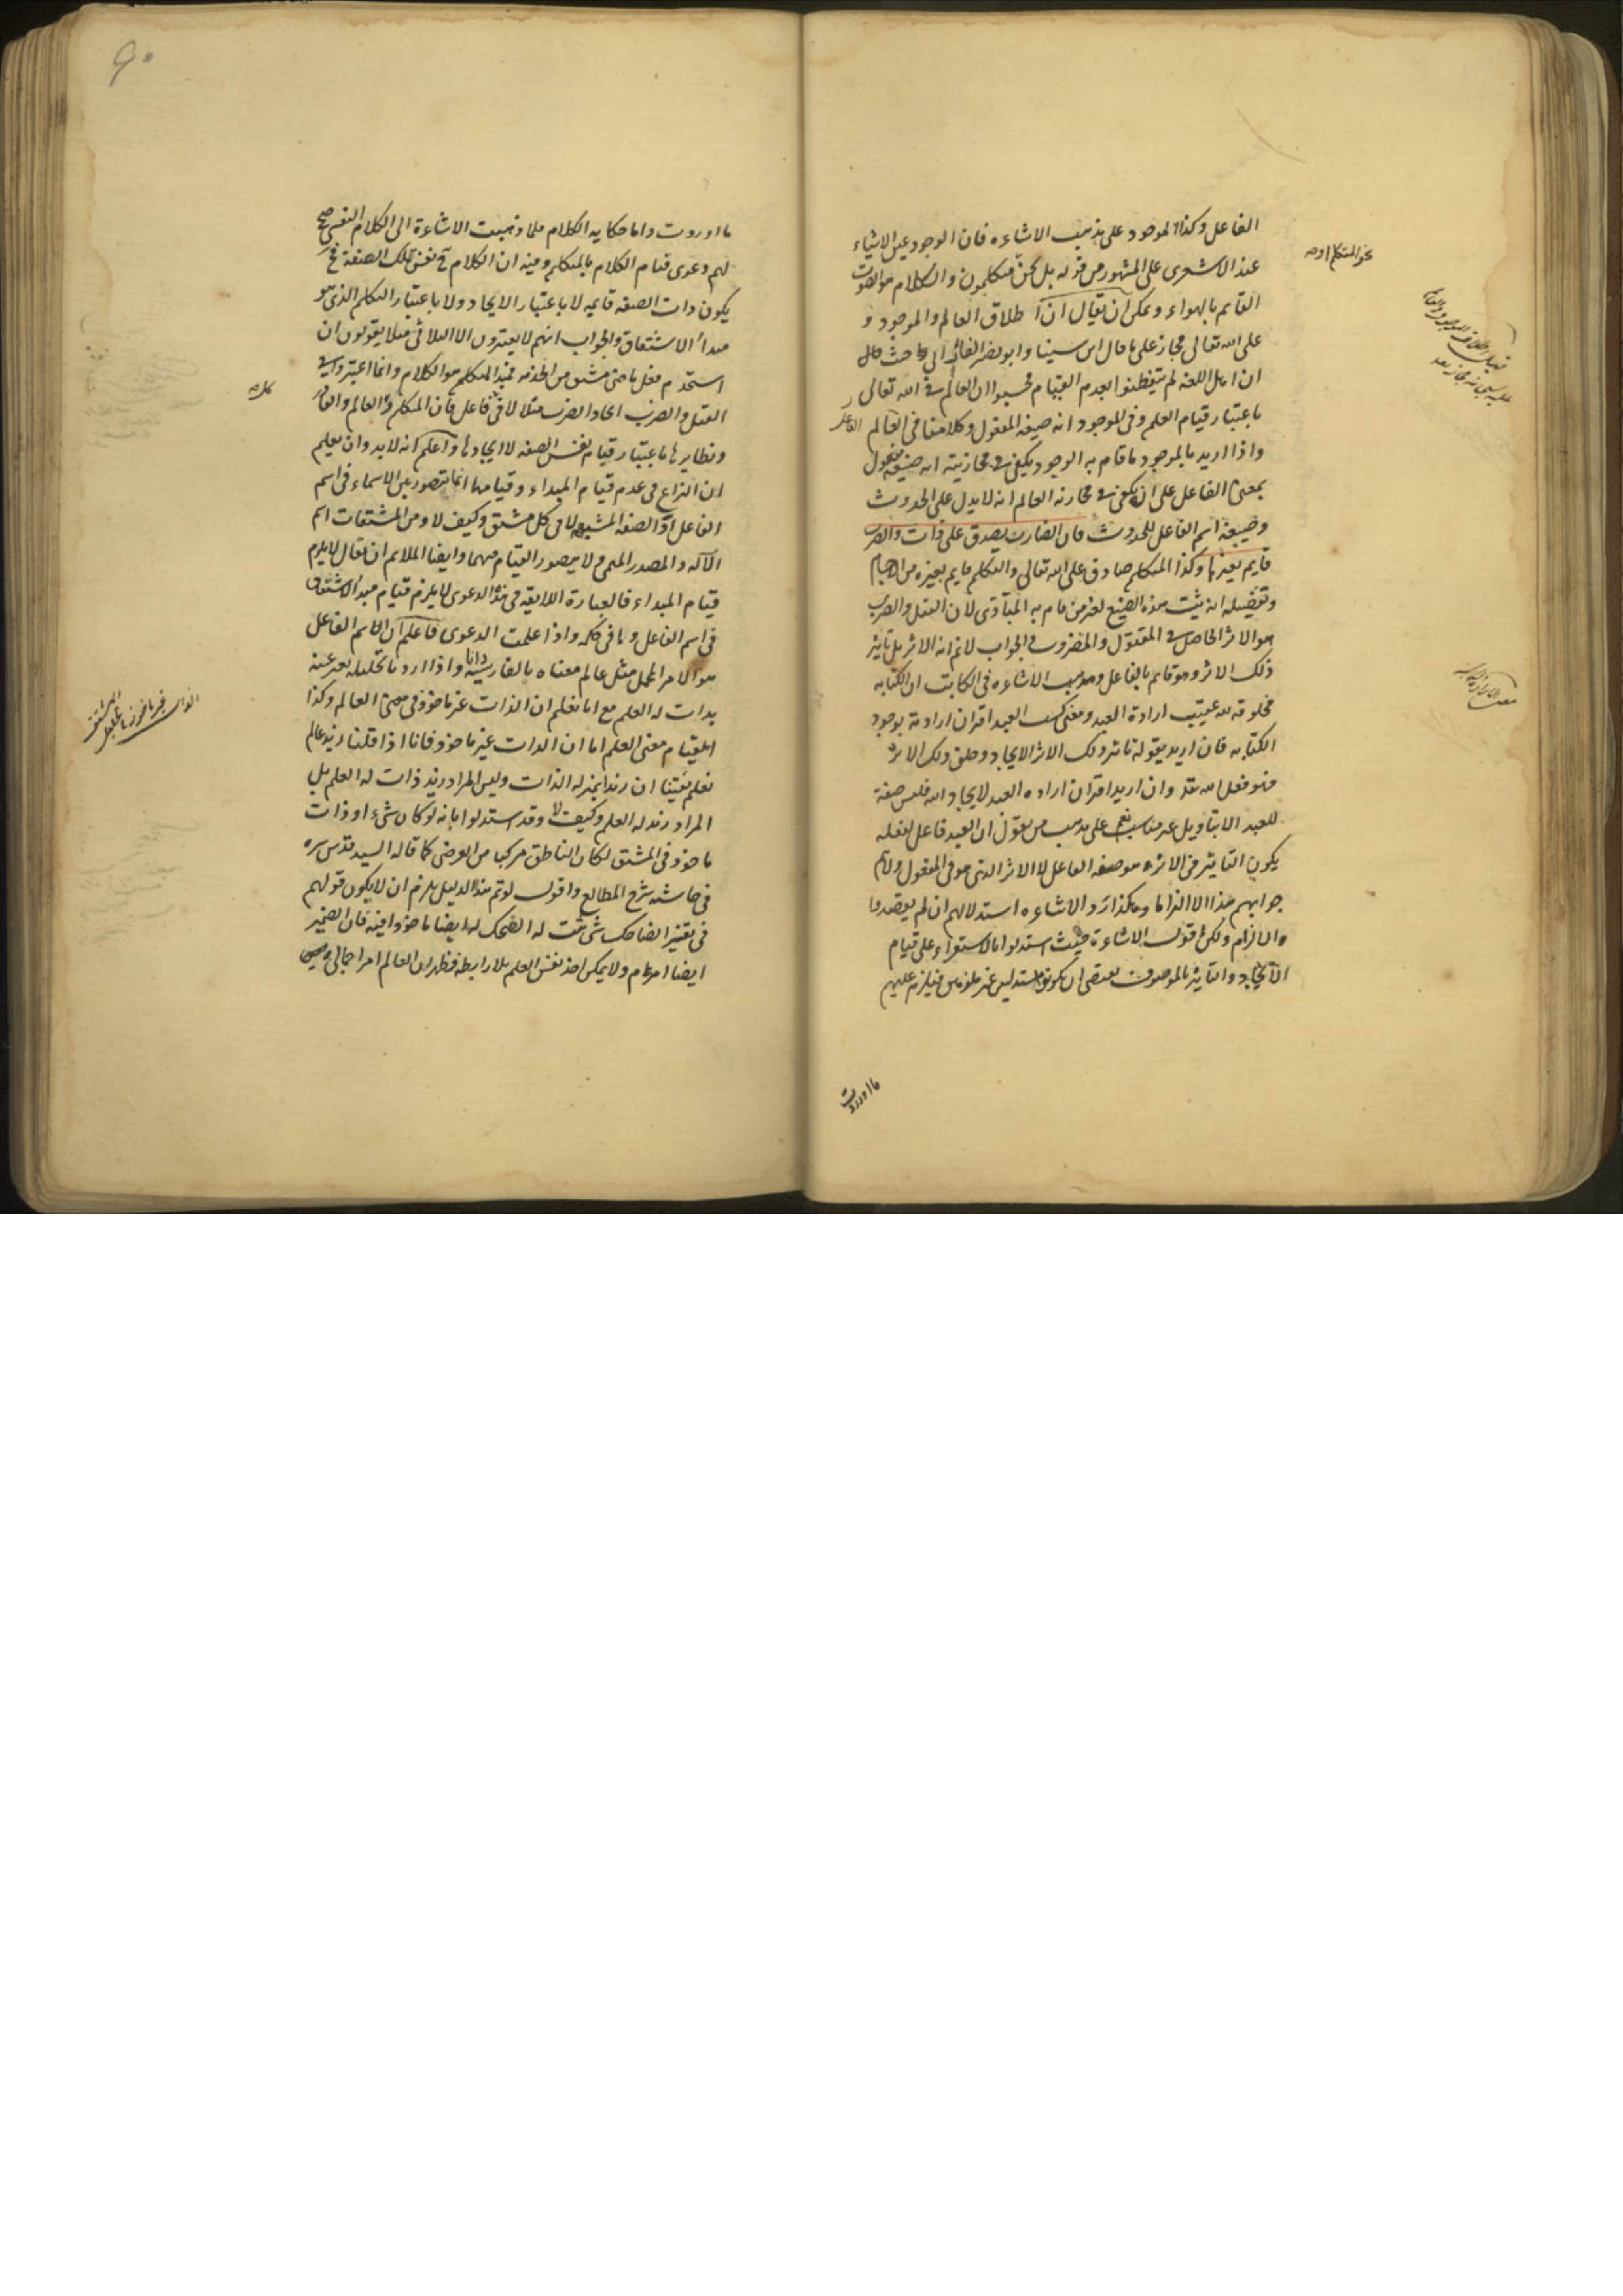 الفاعل وكذا الموجود على مذهب الاشاعره فان الوجود عين الاشياء
عند الاشعرى على المشهور من قوله بل نحن متكلمون والكلام هو الصوت
القايم بالهواء ويمكن ان يقال ان اطلاق العالم والموجود و
على الله تعالى مجاز على ما قال ابن سينا وابو نصر الفارابى حيث قال
ان اهل اللغة لم يتفطنوا لعدم القيام فحسبوا ان العالم فى الله تعالى
باعتبار قيام العلم وفى الموجود انه صيغة المفعول وكلامنا فى العالم
واذا اريد بالموجود ما قام به الوجود يكفى فى مجازيته انه صيغة مفعول
بمعنى الفاعل على ان يكفى فى مجازية العالم انه لا يدل على الحدوث
وصيغة اسم الفاعل للحدوث فان الضارب يصدق على ذات والضرب
قايم بغيرها وكذا المتكلم صادق على الله تعالى والتكلم قايم بغيره من الاجسام
وتفصيله انه يثبت هذه الصيغ لغير من قام به المبادى لان القتل والضرب
هو الاثر الحاصل فى المقتول والمضروب والجواب لا نم انه الاثر بل تأثير
ذلك الاثر وهو قايم بالفاعل ومذهب الاشاعره فى الكاتب ان الكتابه
مخلوقة لله عقيب ارادة العبد ومعنى كسب العبد اقتران ارادته بوجود
الكتابه فان اريد بقوله تاثير ذلك الاثر الايجاد وخلق ذلك الاثر
فهو فعل الله وان اريد اقتران اراده العبد لايجاد الله فليس صفة
للعبد الا بتاويل غير مناسب نعم على مذهب من يقول ان العبد فاعل لفعله
يكون التاثير فى الاثر هو صفة الفاعل لا الاثر الذى هو فى المفعول
جوابهم هذا الا الزاما وهكذا رد الاشاعره استدلالهم ان لم يقصدوا
الالزام ولكن اقول الاشاعرة حيث استدلوا بالاستقراء على قيام
الايجاد والتأثير بالموصوف
ما اوردت
ما اوردت واما حكاية الكلام فلما ذهبت الاشاعرة الى الكلام النفسى صح
لهم دعوى قيام الكلام بالمتكلم وفيه ان الكلام نفس تلك الصفة فح
يكون ذات الصفه قايمه لا باعتبار الايجاد ولا باعتبار التكلم الذى هو
مبدأ الاشتقاق والجواب انهم لا يعتبرون الا الثلاثى فلا يقولون ان
استخدم فعل ماض مشتق من الخدمه فمبدأ المتكلم هو الكلام وانما اعتبروا فى
القتل والضرب ايجاد الضرب مثلا لا فى كل فاعل فان المتكلم والعالم والقادر
ونظايرها باعتبار قيام نفس الصفه لا ايجادها واعلم انه لا بد وان يعلم
ان النزاع فى عدم قيام المبداء وقيامها انما يتصور من الاسماء فى اسم
الفاعل او الصفة المشبهه لا فى كل مشتق وكيف لا ومن المشتقات اسم
الآله والمصدر الميمى ولا يتصور القيام فيهما وايضا الملايم ان يقال لا يلزم
قيام المبداء فالعبارة اللايقه فى هذه الدعوى لا يلزم قيام مبدأ الاشتقاق
فى اسم الفاعل وما فى حكمه واذا علمت الدعوى فاعلم ان اسم الفاعل
هو الامر المجمل مثل عالم معناه بالفارسية دانا واذا اردنا تحليله يعبر عنه
بذات له العلم مع انا نعلم ان الذات غير ماخوذ فى معنى العالم وكذا
القيام معنى العلم اما ان الذات غير ماخوذ فانا اذا قلنا زيد عالم
نعلم يقينا ان زيدا بمنزلة الذات وليس المراد زيد ذات له العلم بل
المراد زيد له العلم وكيف لا وقد استدلوا بانه لو كان شىء او ذات
ماخوذ فى المشتق لكان الناطق مركبا من العرضى كما قاله السيد قدس سره
فى حاشية شرح المطالع واقول لو تم هذا الدليل يلزم ان لا يكون قولهم
فى تفسير الضاحك شىء ثبت له الضحك له ايضا ماخوذا فيه فان الضمير
ايضا امر عام ولا يمكن اخذ نفس العلم بلا رابطه فظهر ان العالم امر اجمالى